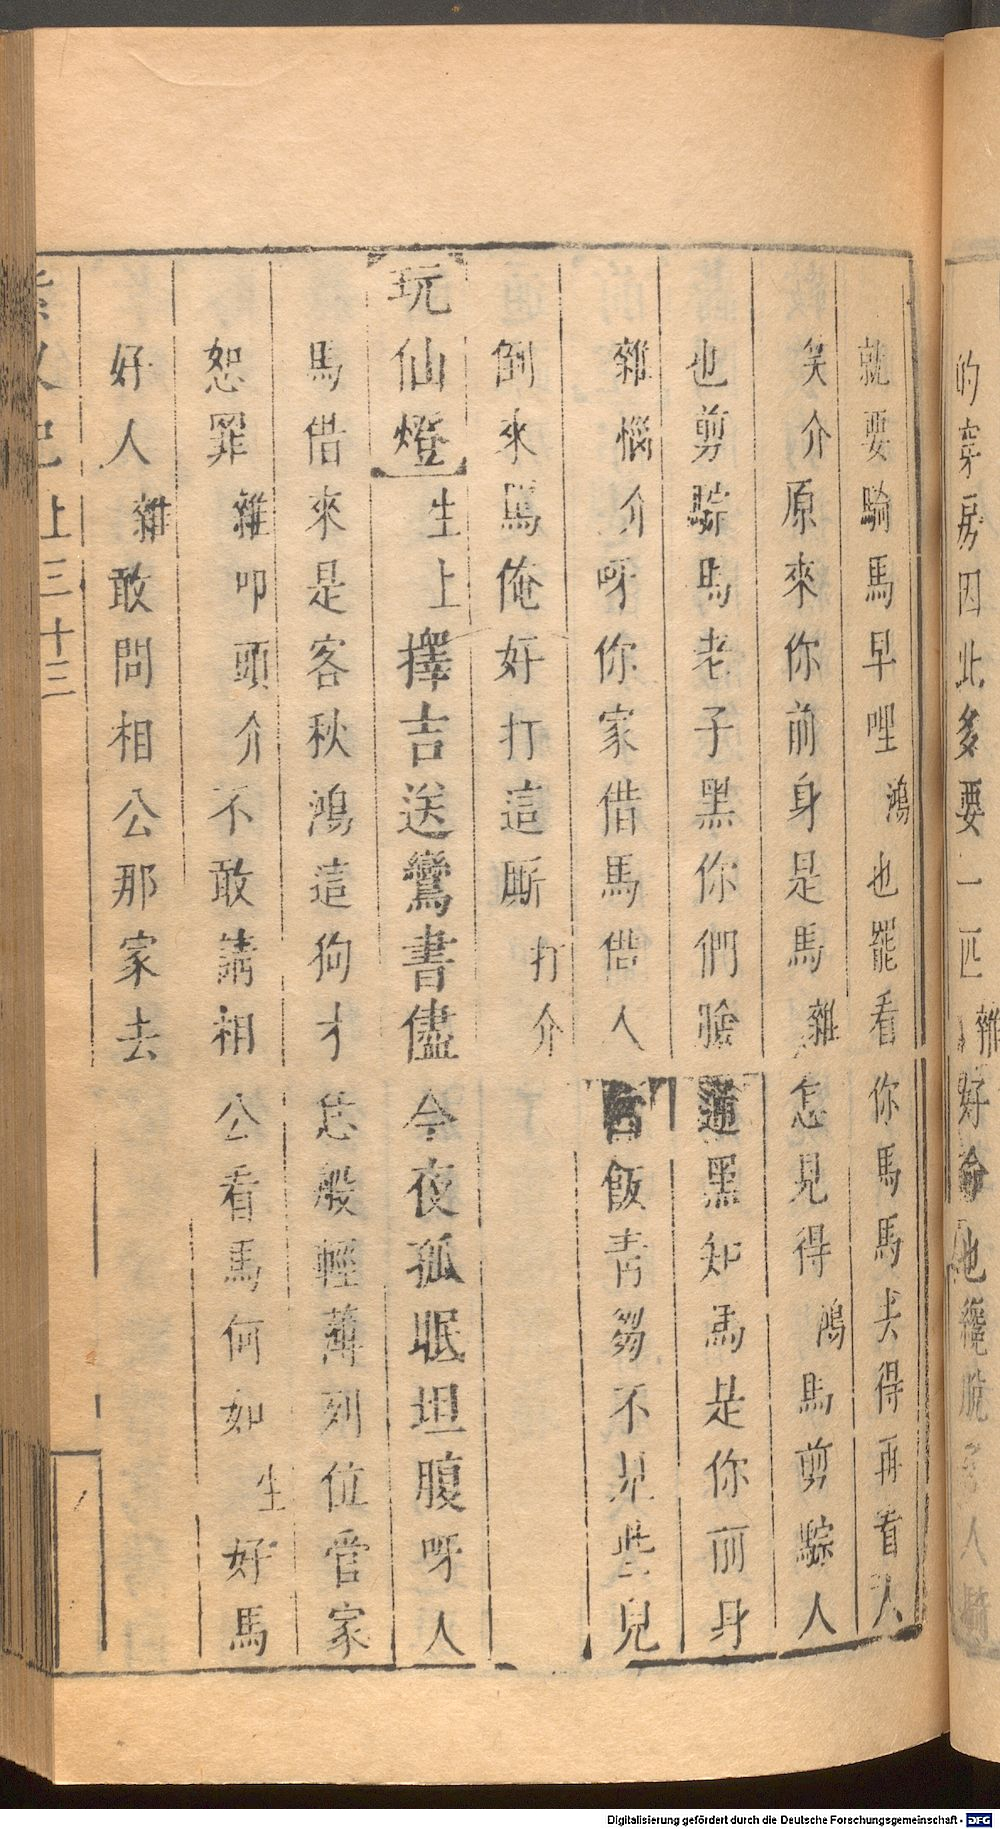 的穿房因此多要一匹 雜 好 他纔脫 人騎
就要騎馬早哩 鴻 也罷看你馬馬夫得再看人
笑介原來你前身是馬 雜 怎見得 鴻 馬剪騌人
也剪騌馬老子黑你們臉通黑知馬是你前身
雜惱介呀你家借馬借人 飯青芻不見些兒
倒來罵俺好打這厮 打介
玩仙燈 生上 擇吉送鸞書儘今夜孤眠坦腹呀人
馬借來是客秋鴻這狗才恁般輕薄列位管家
恕罪 雜叩頭介 不敢請相公看馬何如 生 好馬
好人 雜 敢問相公那家去
上三十三
Digitalisierung gefördert durch die Deutsche Forschungsgemeinschaft - DFG